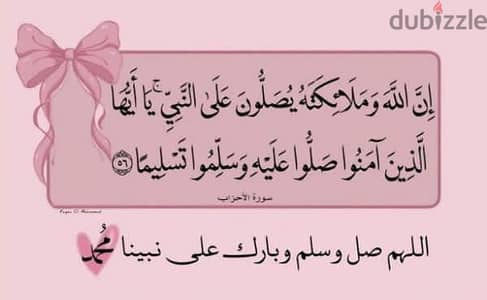 dubizzle
إِنَّ اللَّهَ وَمَلَائِكَتَهُ يُصَلُّونَ عَلَى النَّبِيِّ ۚ يَا أَيُّهَا
الَّذِينَ آمَنُوا صَلُّوا عَلَيْهِ وَسَلِّمُوا تَسْلِيمًا ﴿٥٦﴾
سورة الأحزاب
اللهم صل وسلم وبارك على نبينا مُحمد